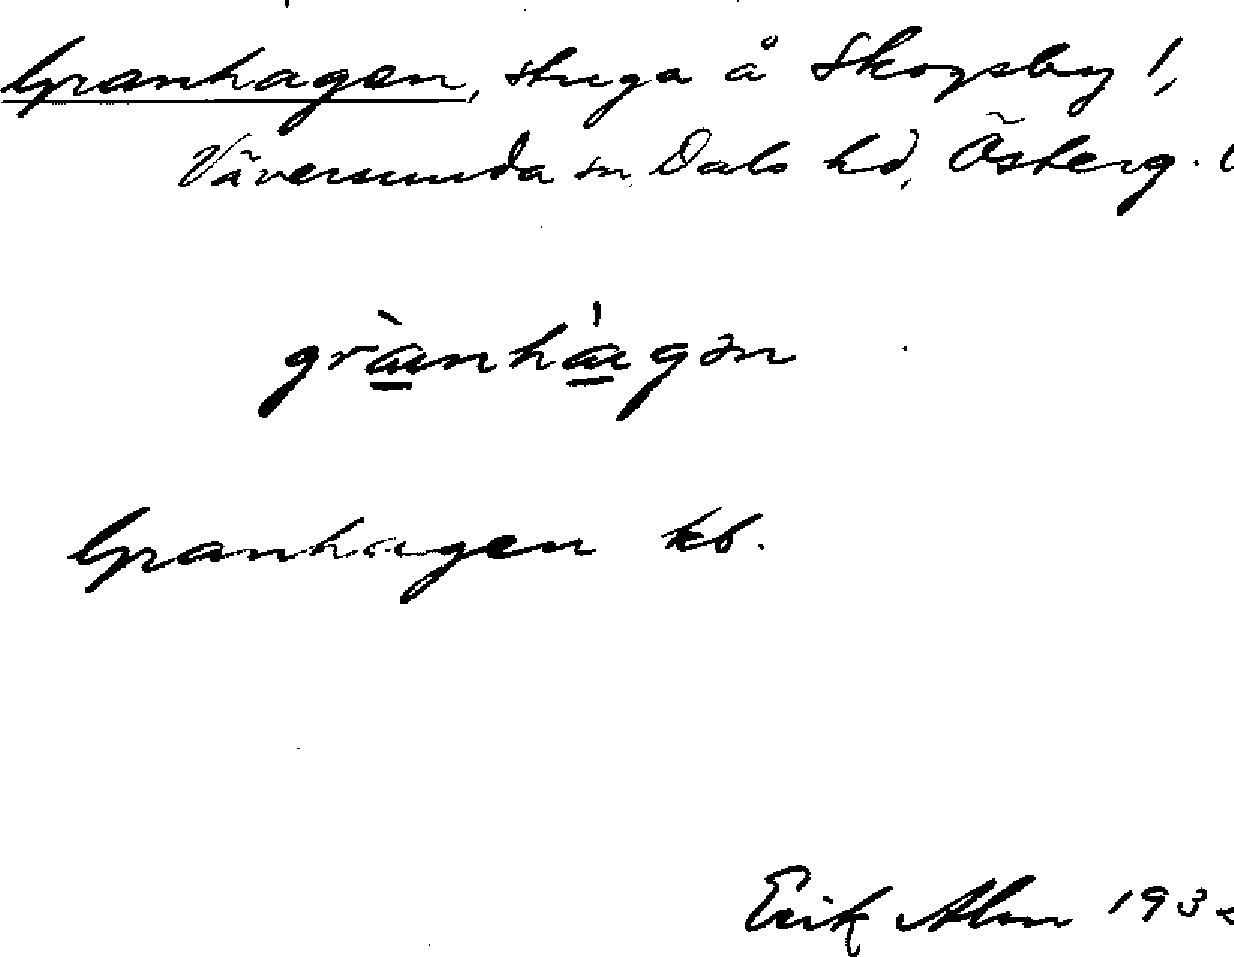 Granhagen, stuga å Skogsby 1,
Väversunda sn, Dals hd, Österg.
grànhágən
Granhagen kb.
Erik Alm 193